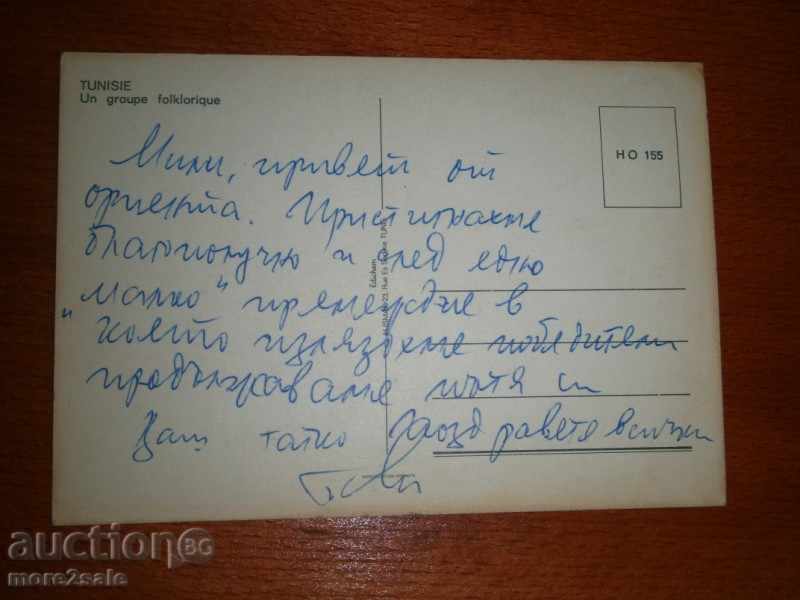 TUNISIE
Un groupe folklorique
HO 155
Мили, привет от
ориента. Пристигнахме
благополучно и след едно
"малко" премеждие в
което излязохме победители
продължаваме пътя си
Ваш татко Поздравете всички
auction BG
more2sale